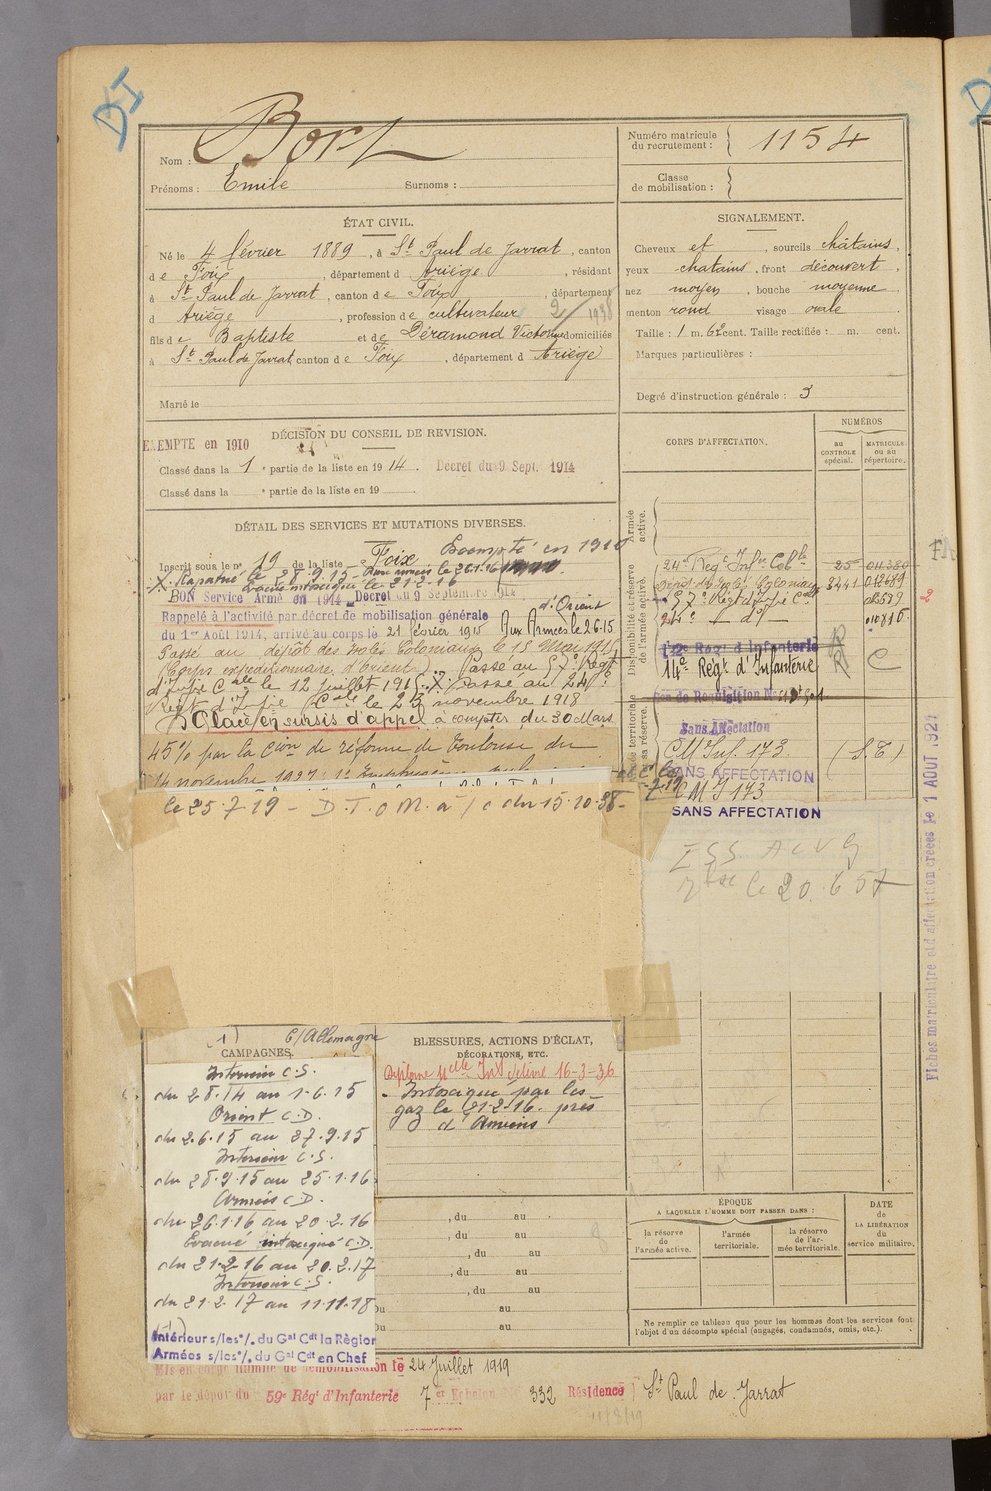 DI
Nom : Bort
Prénoms : Emile Surnoms :
Numéro matricule du recrutement : 1154
Classe de mobilisation :
ÉTAT CIVIL.
Né le 4 février 1889, à St Paul de Jarrat, canton
de Foix, département d Ariège, résidant
à St Paul de Jarrat, canton de Foix, département
d Ariège, profession de cultivateur 2/1938
fils de Baptiste et de Déramond Victorine domiciliés
à St Paul de Jarrat canton de Foix, département d Ariège
Marié le
SIGNALEMENT.
Cheveux et, sourcils châtains,
yeux chatains, front découvert,
nez moyen, bouche moyenne
menton rond visage ovale
Taille : 1 m. 62 cent. Taille rectifiée : m. cent.
Marques particulières :
Degré d'instruction générale : 3
DÉCISION DU CONSEIL DE REVISION.
EXEMPTE en 1910
Classé dans la 1e partie de la liste en 1914. Decret du 9 Sept. 1914
Classé dans la e partie de la liste en 19
CORPS D'AFFECTATION.
NUMÉROS
au CONTROLE spécial.
MATRICULE ou au répertoire.
DÉTAIL DES SERVICES ET MUTATIONS DIVERSES.
Exempté en 1910
Inscrit sous le no 19 de la liste Foix
X. Rapatrié le 28.9.15 - Aux armées le 26.1.16
Evacué intoxiqué le 21.2.16
BON Service Armé en 1914 Decret du 9 Septembre 1914
Rappelé à l'activité par décret de mobilisation générale d'Orient
du 1er Août 1914, arrivé au corps le 21 février 1915 Aux Armées le 2.6.15
Passé au dépôt des Isolés Coloniaux le 15 Mai 1915
(Corps expéditionnaire d'Orient). Passé au 57e Regt
d'Infie Clle le 12 juillet 1915. X. Passé au 24e
Régt d'Infie Clle le 23 novembre 1918
Placé en sursis d'appel à compter du 30 Mars
45% par la Cion de réforme de Toulouse du
14 novembre 1927
le 25-7-19 - D.T.O.M. à / c du 15.10.38-
Armée active.
Disponibilité et réserve de l'armée active.
Armée territoriale et sa réserve.
24e Regt Infie Cole 25 011380
Dépôt des Isolés Coloniaux 3441 012689
57e Régt d'Infie Cale
24e - d° - 010810
112e Regt d'Infanterie
14e Régt d'Infanterie C
Sans Affectation
C M Inf. 173 (S.T.)
SANS AFFECTATION
C M I 173
SANS AFFECTATION
le 20.6.57
Fiches matriculaire et d'affectation créées le 1 AOUT 1921
(1) C/Allemagne
CAMPAGNES.
Intérieur C.S.
du 2 8.14 au 1-6.15
Orient C.D.
du 2.6.15 au 27.9.15
Intérieur C.S.
du 28.9.15 au 25.1.16
Armées C.D.
du 26.1.16 au 20.2.16
Evacué intoxiqué C.D.
du 21.2.16 au 20.2.17
Intérieur C.S.
du 21.2.17 au 11.11.18
Intérieur s/les °/. du Gal Cdt la Région
Armées s/les °/. du Gal Cdt en Chef
BLESSURES, ACTIONS D'ÉCLAT,
DÉCORATIONS, ETC.
Diplôme Mlle Int délivré 16-3-36
- Intoxiqué par les
gaz le 21-2-16. près
d'Amiens
, du au
, du au
, du au
, du au
, du au
Du au
Du au
ÉPOQUE
A LAQUELLE L'HOMME DOIT PASSER DANS :
la réserve de l'armée active.
l'armée territoriale.
la réserve de l'armée territoriale.
DATE de LA LIBÉRATION du service militaire.
Ne remplir ce tableau que pour les hommes dont les services font
l'objet d'un décompte spécial (engagés, condamnés, omis, etc.).
Mis en congé illimité de démobilisation le 24 Juillet 1919
par le dépôt du 59e Régt d'Infanterie 7 et Echelon 332 Résidence St Paul de Jarrat